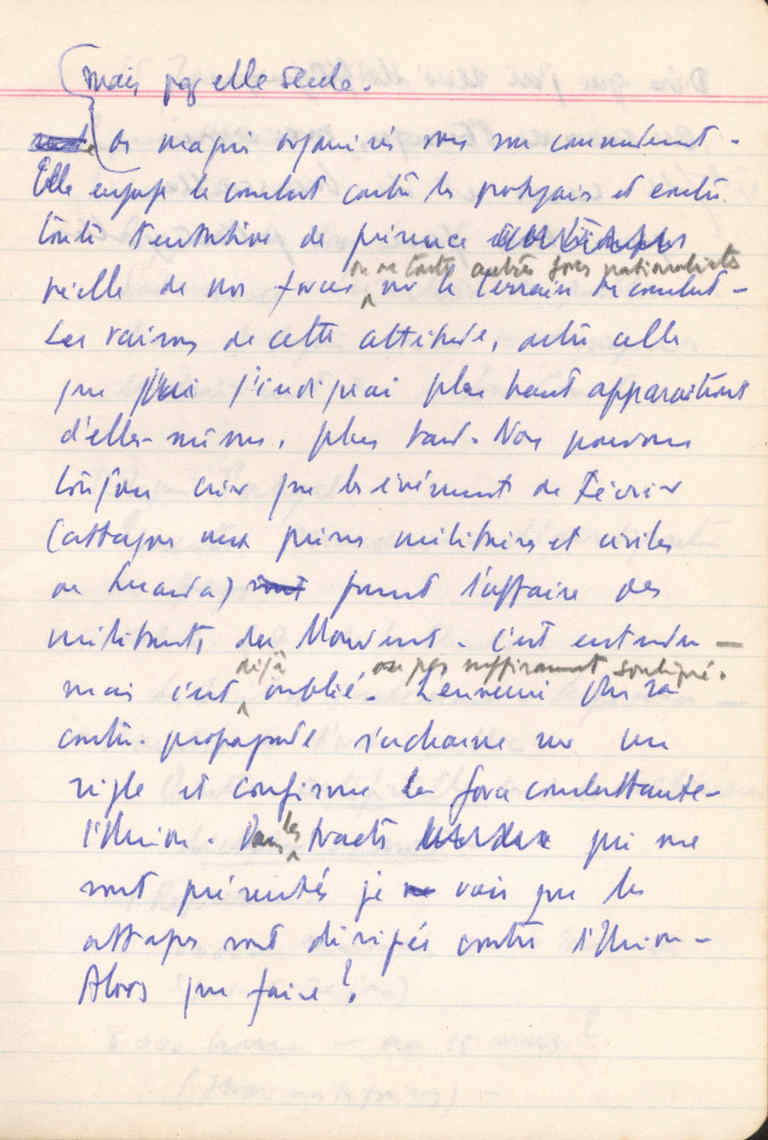 mais par elle seule.
os maquis organisés sous son commandement -
Elle engage le combat contre les portugais et contre
toute tentative de présence
ou de toutes autres forces nationalistes
réelle de nos forces sur le terrain de combat -
Les raisons de cette attitude, outre celle
que j'indiquai plus haut apparaîtront
d'elles-mêmes, plus tard. Nous pouvons
toujours crier que les événements de Février
(attaques aux prisons militaires et civiles
de Luanda) furent l'affaire des
militants du Mouvement - c'est entendu -
déjà ou pas suffisamment souligné.
mais c'est oublié. L'ennemi dans sa
contre-propagande s'acharne sur un
sigle et confirme la force combattante -
l'Union. Dans les tracts qui me
sont présentés je vois que les
attaques sont dirigées contre l'Union -
Alors que faire ?